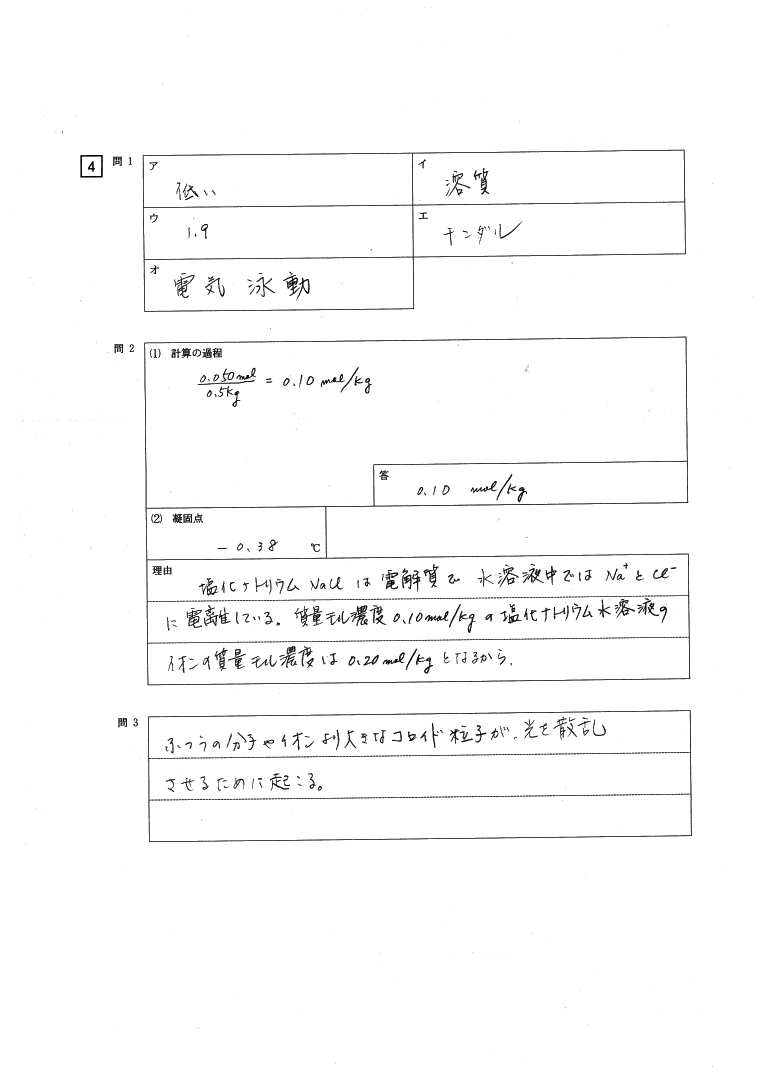 4 問1 ア 低い
イ 溶質
ウ 1.9
エ チンダル
オ 電気泳動
問2 (1) 計算の過程
0.050mol/0.5kg = 0.10 mol/kg
答 0.10 mol/kg
(2) 凝固点
-0.38 ℃
理由 塩化ナトリウム NaCl は電解質で 水溶液中では Na⁺ と Cl⁻
に電離している。質量モル濃度 0.10mol/kg の塩化ナトリウム水溶液の
イオンの質量モル濃度は 0.20mol/kg となるから.
問3 ふつうの分子やイオンより大きなコロイド粒子が、光を散乱
させるために起こる。